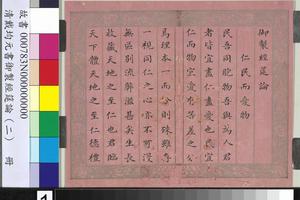 御製經筵論
仁民而愛物
民吾同胞物吾與為人君
者皆宜盡仁盡愛也宜
仁而物宜愛有差等之分
焉理本一而分則殊雖
一視同仁之心亦不可漫
無區別流弊滋甚矣生長
收藏天地之至仁也君臨
天下體天地之至仁德禮
故書 000783N00000000
清戴均元書御製經筵論(二) 冊